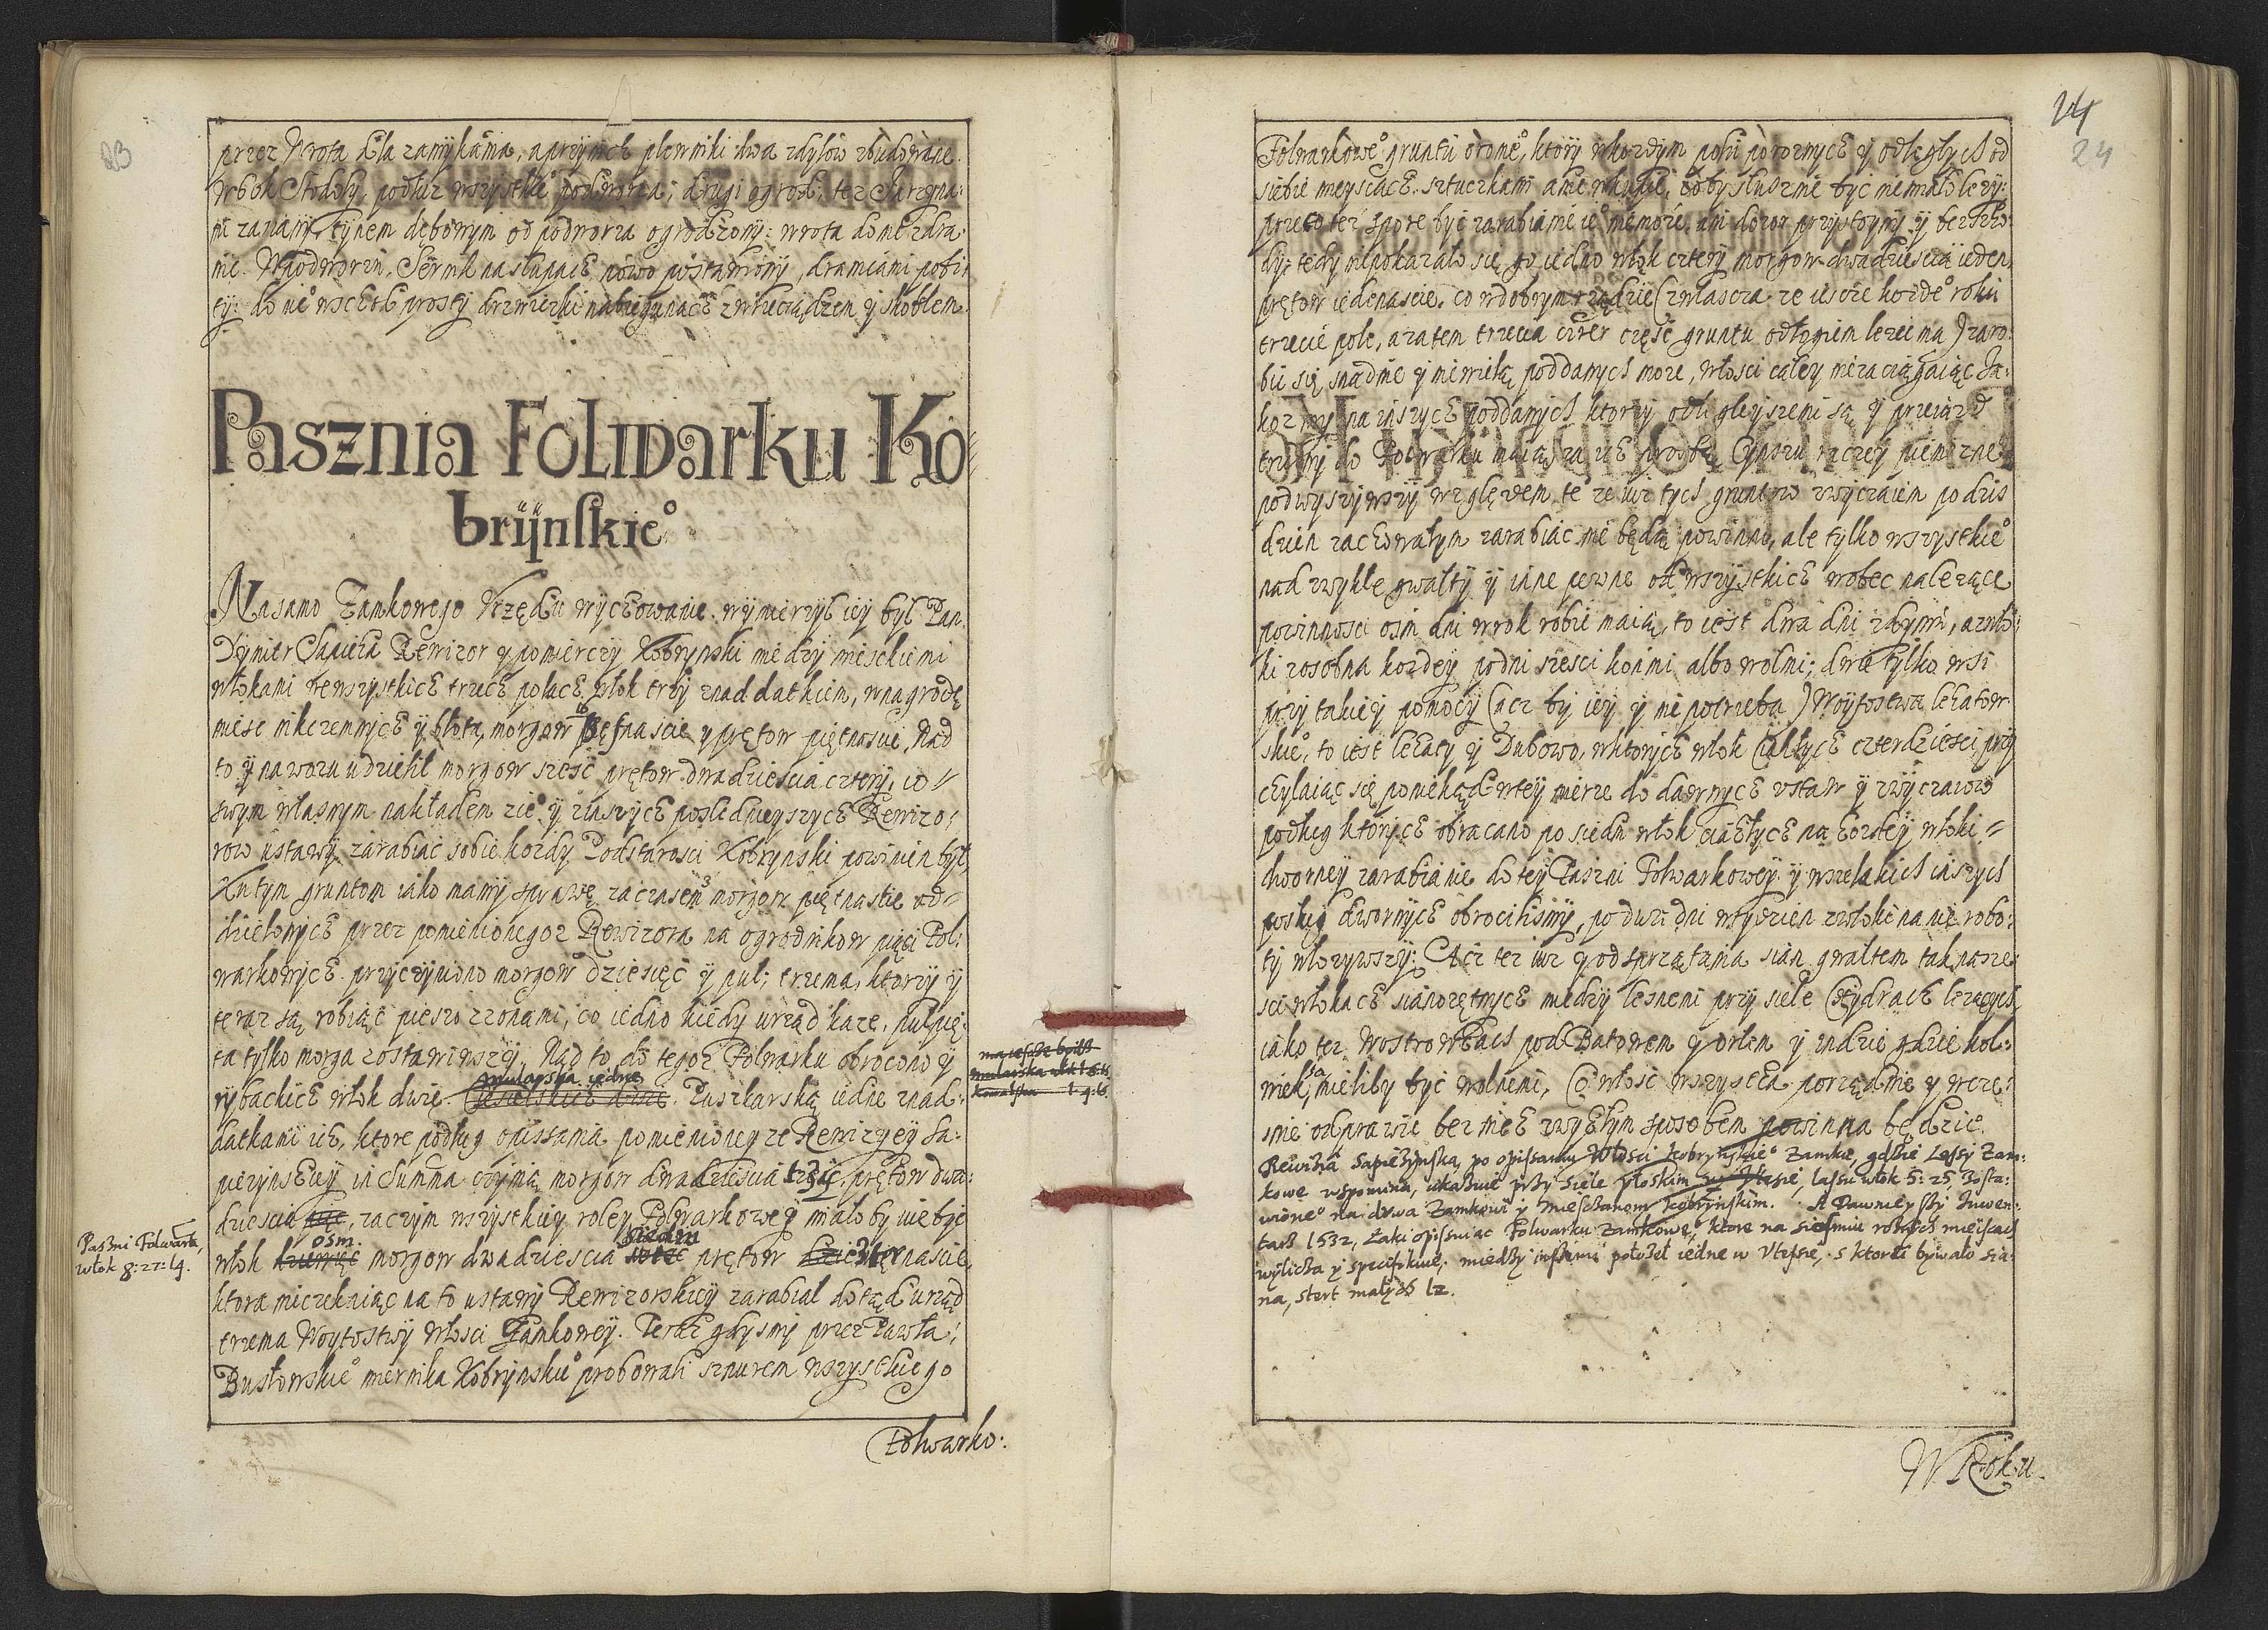 23
przez Wrota dla zamÿkania, a przÿnich plewniki dwa z dÿlow zbudowane.
Wbok Stodolÿ, podłuz wszystkie° podworza, drugi ogrod, tez Jarzyna:
mi zasianÿ, tÿnem dębowym od podworza ogrodzonÿ: wrota do nie° zdra:
nic. Wpodworzu, Sernik na słupach, nowo postawionÿ, dranicami pobi:
tÿ: do nie° wschod prostÿ drzwiczki na biegunach z wrzeciądzem ÿ skoblem.
Pasznia Folwarku Ko
brÿnskie°
Na samo Zamkowego Vrzędu wÿchowanie. wÿmierzÿl ieÿ bÿl Pan.
Dÿmitr Sapieha Rewizor ÿ pomierczÿ Kobrynski miedzÿ mieskiemi
włokami wewszystkich trzech polach, włok trzÿ z naddatkiem, w nagrodę
miesc nikczemnÿch ÿ błota, morgow piętnascie ÿ prętow piętnascie, Nad
to ÿ nawozu udzielil morgow szesc prętow dwadziescia czterÿ, co
swym własnym nakładem z te° ÿ z inszÿch posledniejszÿch Rewizo:
row ustawÿ zarabiac sobie kozdÿ Podstarosci Kobrynski powinien bÿł,
Ku tym gruntom iako mamÿ sprawę za czasem morgow piętnascie od
dzielonÿch przez pomienionegoz Rewizora na ogrodnikow pięci Fol:
warkowÿch. przÿczÿniono morgow dziesięć ÿ pul; trzema, ktorzÿ ÿ
teraz są robiąc pieszo z zonami, co iedno kiedÿ urząd kaze, pulpię:
ta tylko morga zostawiwszÿ. Nad to do tegoz Folwarku obrocono ÿ
mularska iedne
rÿbackich włok dwie. Puszkarską iedne z nad:
datkami ich, ktore podług opissania pomienioneÿ ze Rewizÿeÿ Sa:
pieżynskieÿ in Summa czÿnią morgow dwadziescia trzÿ, prętow dwa:
dziescia, zaczym wszÿstkieÿ roleÿ Folwarkoweÿ miało bÿ sie bÿc
osm. siedm
włok morgow dwadziescia prętow nascie,
ktora nieczekaiąc na to ustawÿ Rewizorskieÿ zarabial dotąd urząd
trzema Woÿtostwÿ włosci Zamkoweÿ. Teraz gdÿsmÿ przez Pawła
Busłowskie° miernika Kobrÿnskie° probowali sznurem wszystkiego
Folwarko:
Paszni Folwark,
włok 8: 27: 19.
mularska
kowalska
24
24
Folwarkowe° gruntu orone°, ktorÿ w kozdÿm polu po roznÿch ÿ odległych od
siebie meÿscach sztuczkami a nie w kupie, coby słusznie być nie miało lezÿ:
przeto tez spore być zarabianie ie° nie moze, ani dozor przÿstoÿnÿ ÿ bez szko
dÿ: tedÿ nie pokazało się go iedno włok czterÿ morgow dwadziescia ieden,
prętow iedenascie. Co w dobrym rządzie (zwłascza ze iescie kozde° roku
trzecie pole, a zatem trzecia część gruntu odłogiem lezeć ma) zaro:
bić się snadnie ÿ niewielą poddanych moze, włosci całeÿ nie zaciągaiąc Ja:
koz mÿ na inszÿch poddanych ktorzÿ odległeÿszemi są ÿ przeiazd
trudnÿ do Folwarku maią, za ich prozbą Cÿnszu raczeÿ pieniezne°
podwyszÿwszÿ względem te° ze iuz tych gruntow zwÿczaiem po dzis
dzien zachowałym zarabiac nie będą powinni, ale tylko wszystkie°
nad zwykłe gwałtÿ ÿ inne pewne od wszystkich wobec nalezące
powinnosci osm dni w rok robić maią, to iest dwa dni z dÿmu, a z wło
ki zosobna kozdeÿ po dni szesci konmi albo wolmi; dwie tylko wsi
przÿ takieÿ pomocÿ (acz bÿ ieÿ ÿ nie potrzeba) Woÿtostwa Lechatow
skie°, to iest Lechaty ÿ Dubowo, w ktorÿch włok ciahłÿch czterdziesci przÿ
chylaiąc się poniekąd w teÿ mierze do dawnÿch ustaw ÿ zwÿczaiow
podług ktorÿch obracano po siedm włok ciahłÿch na kozdeÿ włoki
dworneÿ zarabianie do teÿ Paszni Folwarkoweÿ ÿ wszelakich inszych
posług dwornÿch obrocilismÿ, po dwa dni w tÿdzien z włoki na nie robo:
tÿ włozywszÿ: Acz tez iuz ÿ od sprzątania sian gwałtem tak na sze
sci włokach sianozętnÿch miedzÿ lesnemi przÿ siele Chÿdrach lezących
iako tez Wostrowkach pod Batowem ÿ orlem ÿ indzie gdzie kol:
wiek są, mieliby być wolnemi, Co włosć wszystka porządnie ÿ wcze:
snie odprawić bez nich zwykłym sposobem powinna będzie.
Rewizia Sapieżyńska, po opissaniu Włosci Kobryńskie° Zamku, gdzie Lassy Zam:
kowe wspomina, ukazuie przy siele Płoskim, lassu włok 5: 25, Zosta:
wione° na drwa Zamkowi y mieszczanom Kobryńskim. A Dawnieyszy Inwen:
tarz 1532, Łaki opisuiac Folwarku Zamkowe°, ktore na siedmiu roznych mieyscach
wylicza y specifikuie, miedzy inszemi położeł iedne w Vtesie, s ktorei bywało sia:
na, stert małych 12.
W Roku.